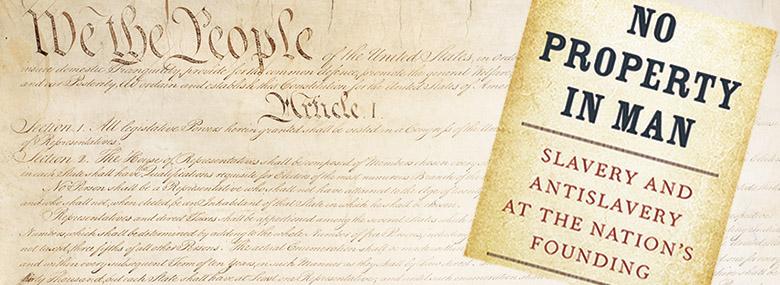 We the People of the United States, in Orde
insure domestic Tranquility, provide for the common defence, promote the general Welfare
and our Posterity, do ordain and establish this Constitution for the United States of Amer
Article. I.
Section. 1. All legislative Powers herein granted shall be vested in a Congress of the
of Representatives.
Section. 2. The House of Representatives shall be composed of Members chosen every
in each State shall have Qualifications requisite for Electors of the most numerous Branch of
No Person shall be a Representative who shall not have attained to the Age of
and who shall not, when elected, be an Inhabitant of that State in which he shall be chosen.
Representatives and direct Taxes shall be apportioned among the several States
Numbers, which shall be determined by adding to the whole Number of free Persons,
not taxed, three fifths of all other Persons. The actual Enumeration shall be made
and within every subsequent Term of ten Years, in such Manner as they shall by
thirty Thousand, but each State shall have at Least one Representative; and until such enumeration
NO
PROPERTY
IN MAN
SLAVERY AND
ANTISLAVERY
AT THE NATION'S
FOUNDING